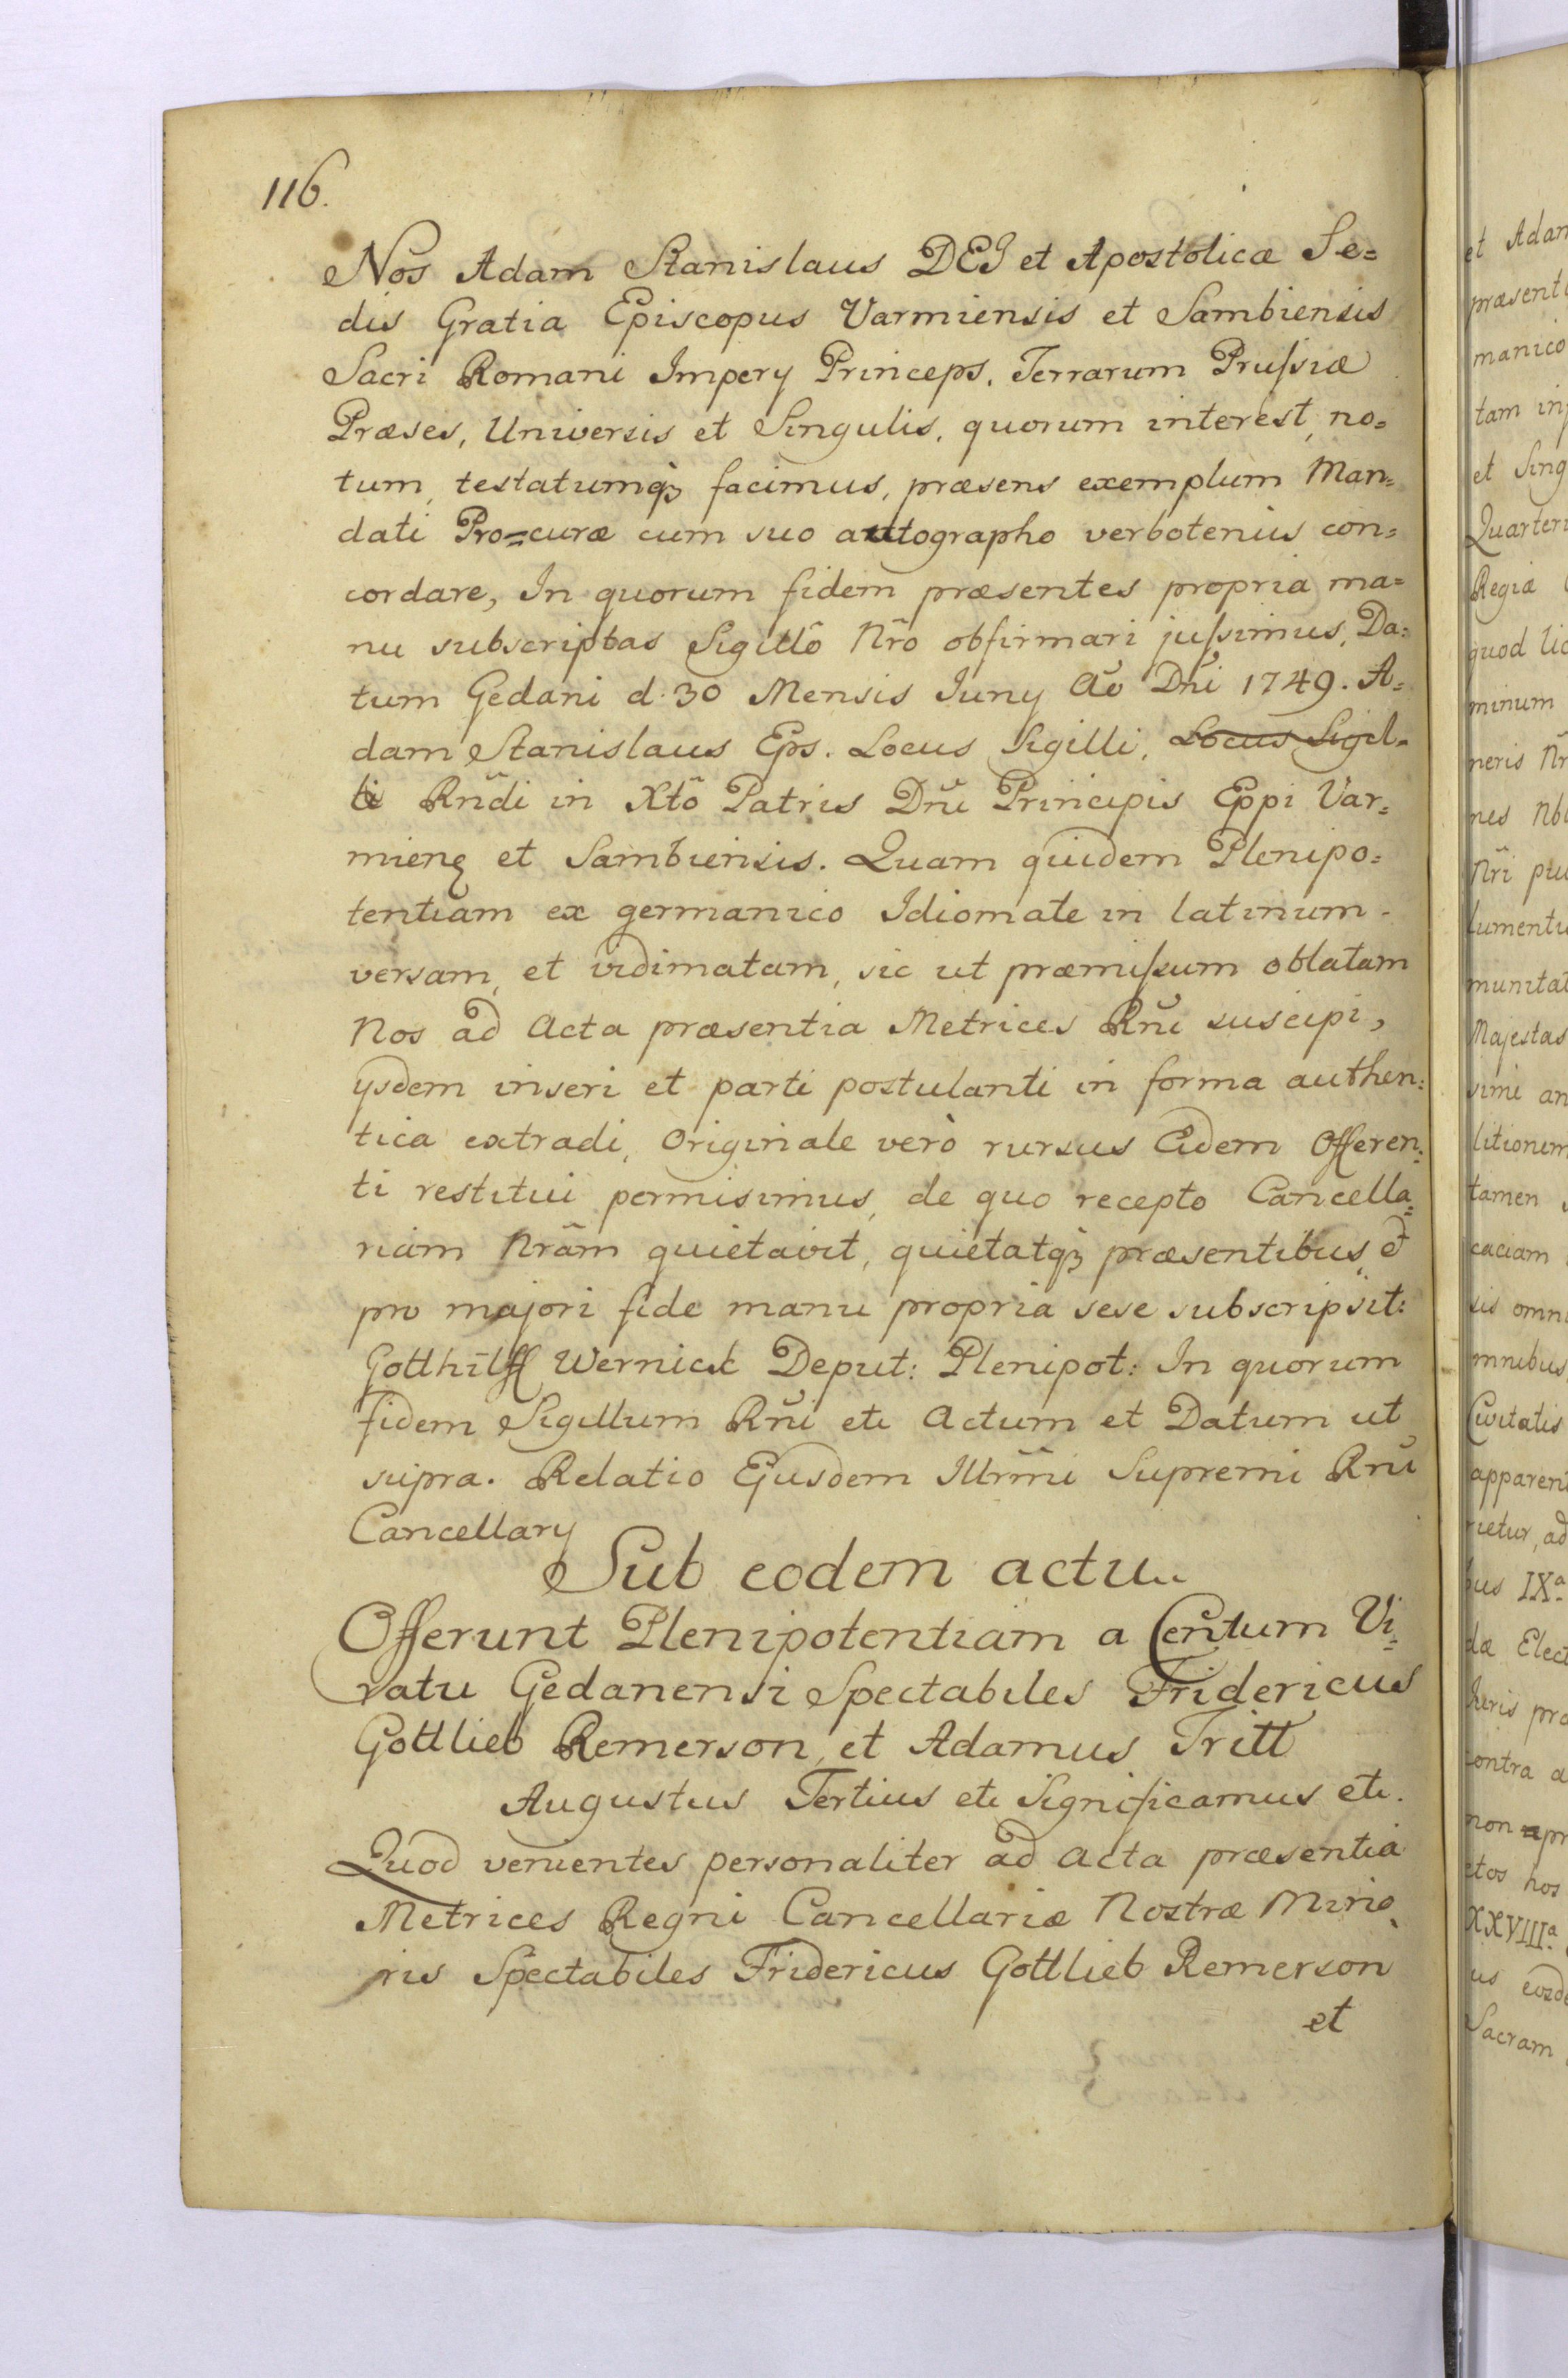 116.
Nos Adam Stanislaus DEI et Apostolicæ Se=
dis Gratia Episcopus Varmiensis et Sambiensis
Sacri Romani Impery Princeps, Terrarum Prussiæ
Præses, Universis et Singulis, quorum interest, no=
tum, testatumqȝ facimus, præsens exemplum Man=
dati Pro=curæ cum suo auttographo verbotenius con=
cordare, In quorum fidem præsentes propria ma=
nu subscriptas Sigillô Nr̃o obfirmari jussimus, Da=
tum Gedani d. 30 Mensis Iuny Ao Dñi 1749. A=
dam Stanislaus Eps. Locus Sigilli, Locus Sigil=
li Rñdi in Xtô Patris Dñi Principis Eppi Var=
mienȩ et Sambiensis. Quam quidem Plenipo=
tentiam ex germanico Idiomate in latinum
versam, et vidimatam, sic ut præmissum oblatam
Nos ad Acta præsentia Metrices Rñi suscipi,
ysdem inseri et parti postulanti in forma authen=
tica extradi, Originale verò rursus Eidem Offeren=
ti restitui permisimus, de quo recepto Cancella=
riam Nr̃am quietavit, quietatqȝ præsentibus, et
pro majori fide manu propria sese subscripsit:
Gotthilff Wernick Deput: Plenipot: In quorum
fidem Sigillum Rñi etc Actum et Datum ut
supra. Relatio Ejusdem Illrm̃i Supremi Rñi
Cancellary
Sub eodem actu
Offerunt Plenipotentiam a Centum Vi=
ratu Gedanensi Spectabiles Fridericus
Gottlieb Remerson, et Adamus Tritt
Augustus Tertius etc Significamus etc.
Quod venientes personaliter ad Acta præsentia
Metrices Regni Cancellariæ Nostræ Mino=
ris Spectabiles Fridericus Gottlieb Remerson
et
et Adam
præsenti
manico
tam in
et Sing
Quarteri
Regiæ
quod lic
minum
neris Nr
nes Nb
Nr̃i
lumentu
munitat
Majestas
simi an
litionem
tamen
caciam
sis omn
mnibus
Civitatis
apparen
rietur, ad
bus IXa
dæ Elect
heris pro
contra a
non apr
ctos hos
XXVIIIa
us eosde
Sacram